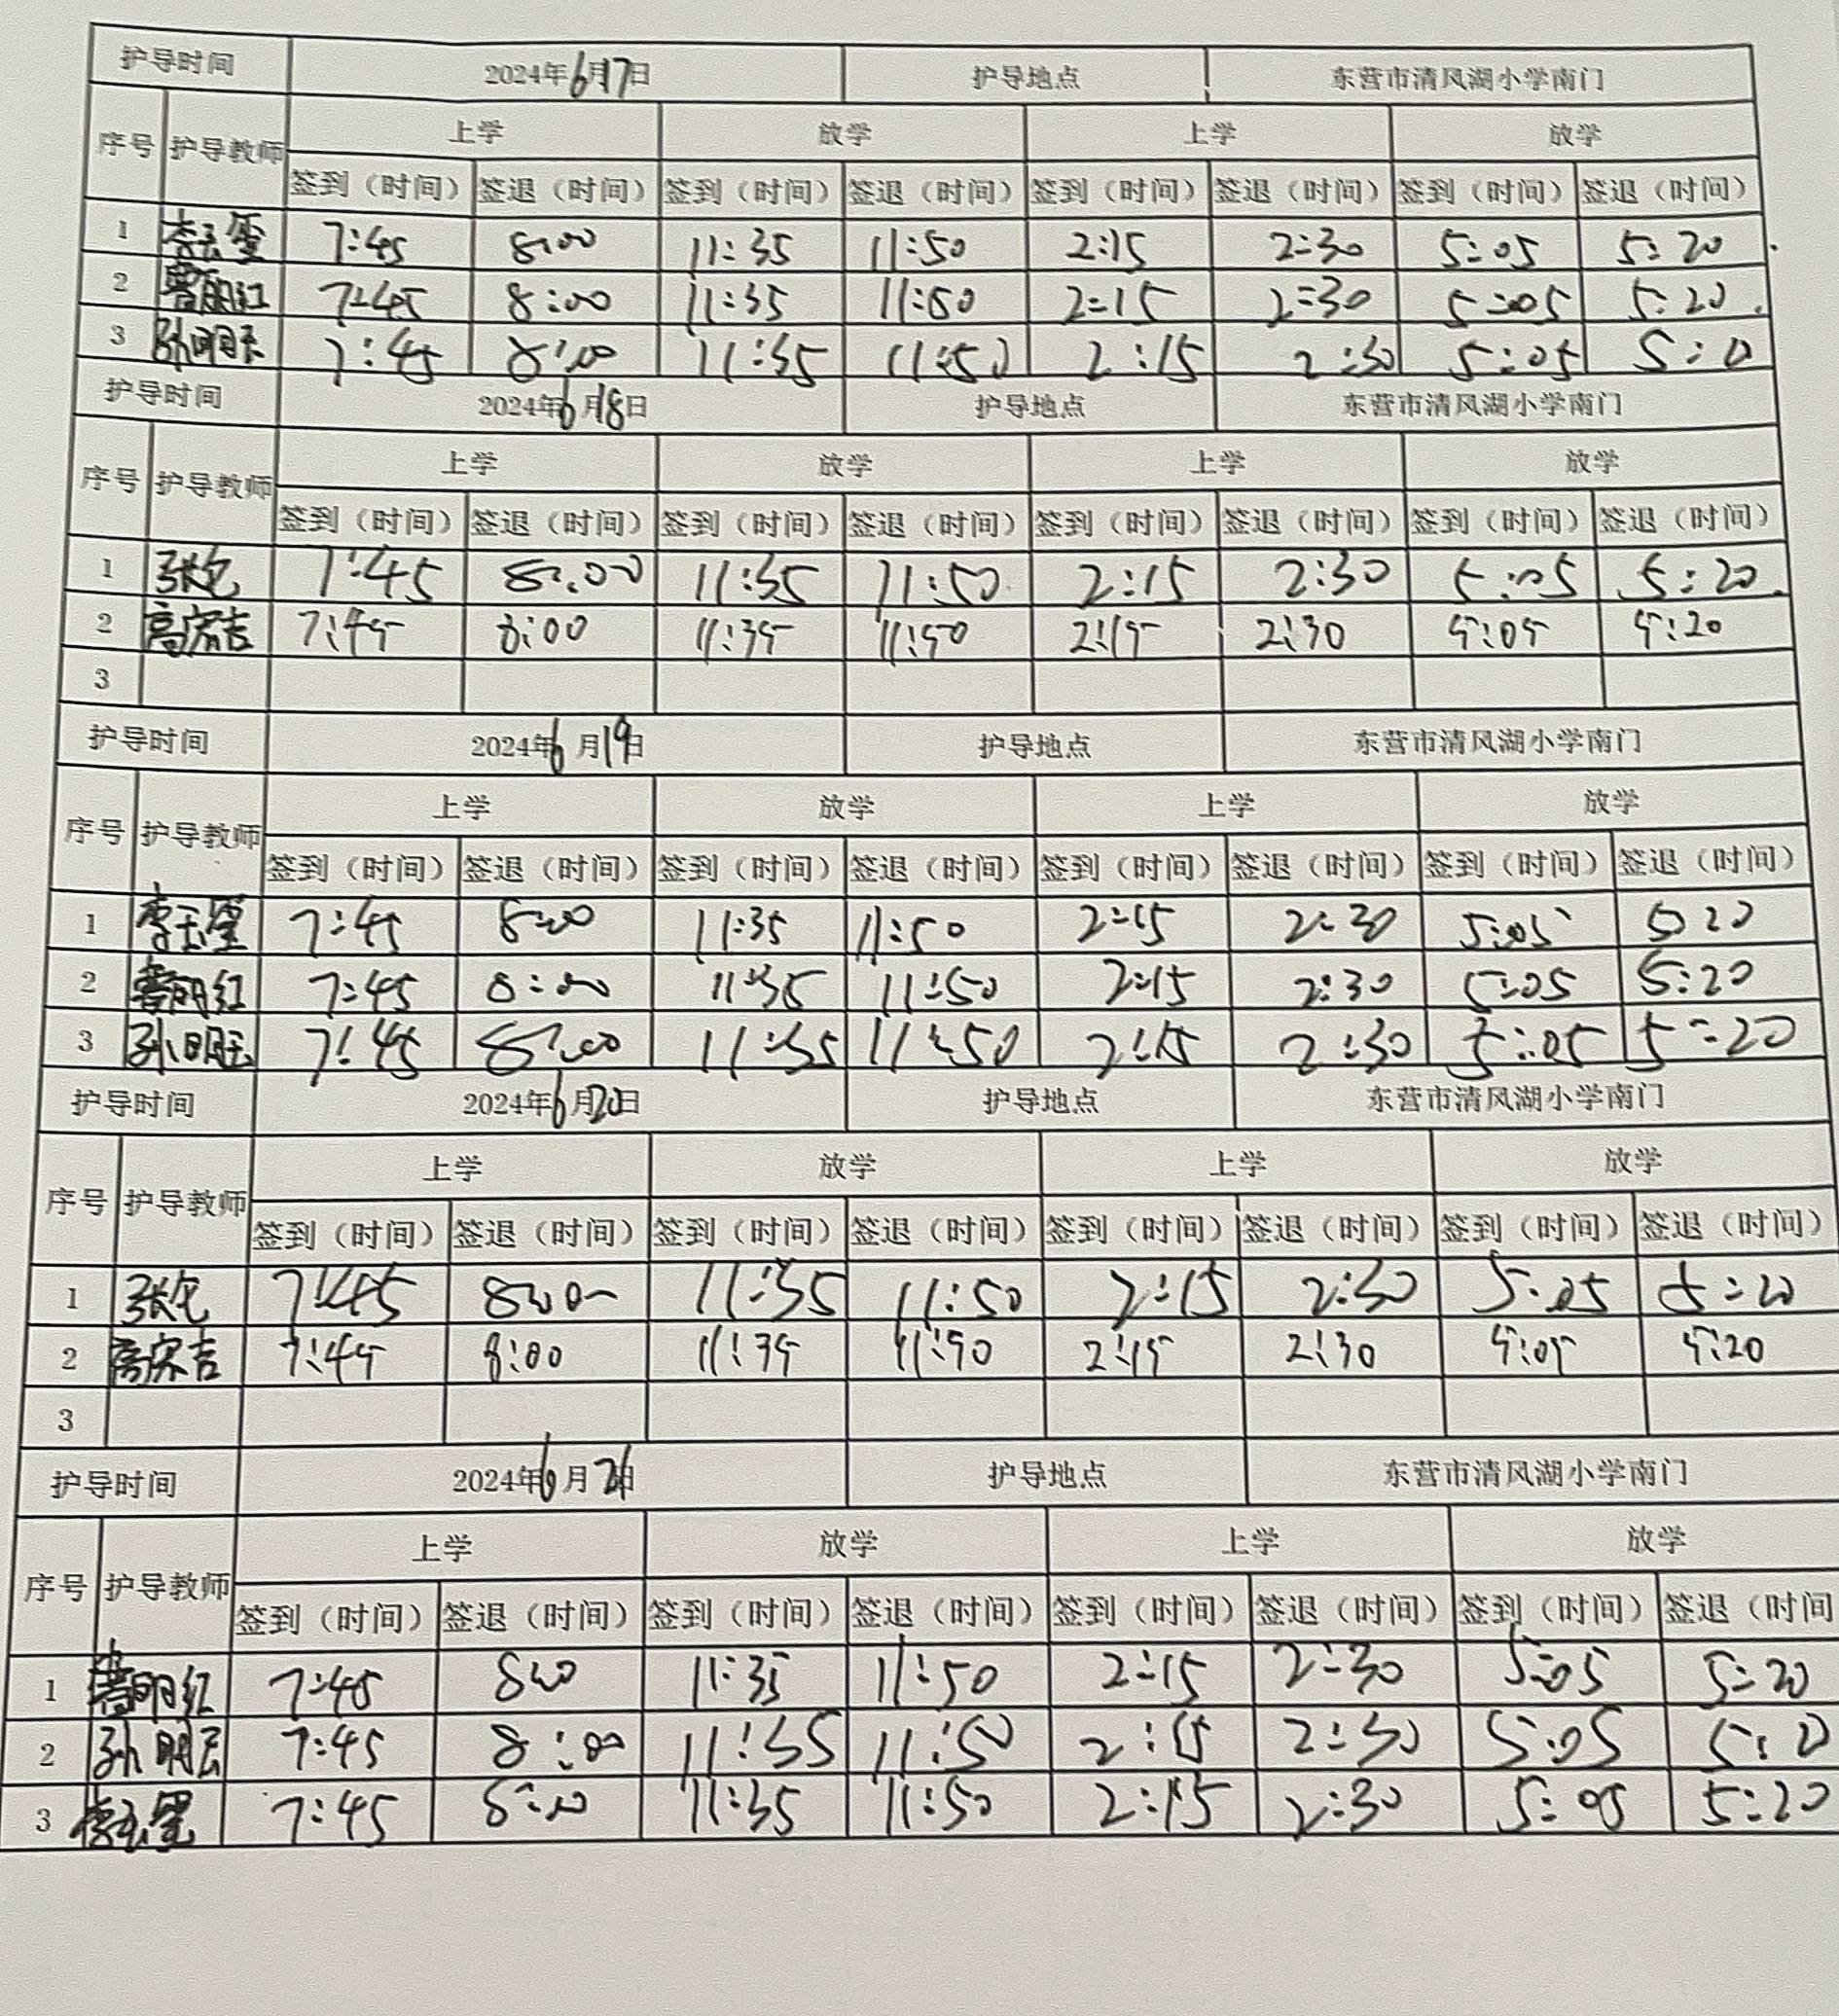 护导时间 2024年6月17日 护导地点 东营市清风湖小学南门
序号 护导教师 上学 放学 上学 放学
签到（时间） 签退（时间） 签到（时间） 签退（时间） 签到（时间） 签退（时间） 签到（时间） 签退（时间）
1 7:45 8:00 11:35 11:50 2:15 2:30 5:05 5:20
2 7:45 8:00 11:35 11:50 2:15 2:30 5:05 5:20
3 7:45 8:00 11:35 11:50 2:15 2:30 5:05
护导时间 2024年6月18日 护导地点 东营市清风湖小学南门
序号 护导教师 上学 放学 上学 放学
签到（时间） 签退（时间） 签到（时间） 签退（时间） 签到（时间） 签退（时间） 签到（时间） 签退（时间）
1 7:45 8:00 11:35 11:50 2:15 2:30 5:05 5:20
2 高宗吉 7:45 8:00 11:35 11:50 2:15 2:30 5:05 5:20
3
护导时间 2024年6月19日 护导地点 东营市清风湖小学南门
序号 护导教师 上学 放学 上学 放学
签到（时间） 签退（时间） 签到（时间） 签退（时间） 签到（时间） 签退（时间） 签到（时间） 签退（时间）
1 7:45 8:00 11:35 11:50 2:15 2:30 5:05 5:20
2 7:45 8:00 11:35 11:50 2:15 2:30 5:05 5:20
3 7:45 8:00 11:35 11:50 2:15 2:30 5:05 5:20
护导时间 2024年6月20日 护导地点 东营市清风湖小学南门
序号 护导教师 上学 放学 上学 放学
签到（时间） 签退（时间） 签到（时间） 签退（时间） 签到（时间） 签退（时间） 签到（时间） 签退（时间）
1 7:45 8:00 11:35 11:50 2:15 2:30 5:05 5:20
2 高宗吉 7:45 8:00 11:35 11:50 2:15 2:30 5:05 5:20
3
护导时间 2024年6月21日 护导地点 东营市清风湖小学南门
序号 护导教师 上学 放学 上学 放学
签到（时间） 签退（时间） 签到（时间） 签退（时间） 签到（时间） 签退（时间） 签到（时间） 签退（时间
1 7:45 8:00 11:35 11:50 2:15 2:30 5:05 5:20
2 7:45 8:00 11:35 11:50 2:15 2:30 5:05
3 7:45 8:00 11:35 11:50 2:15 2:30 5:05 5:20